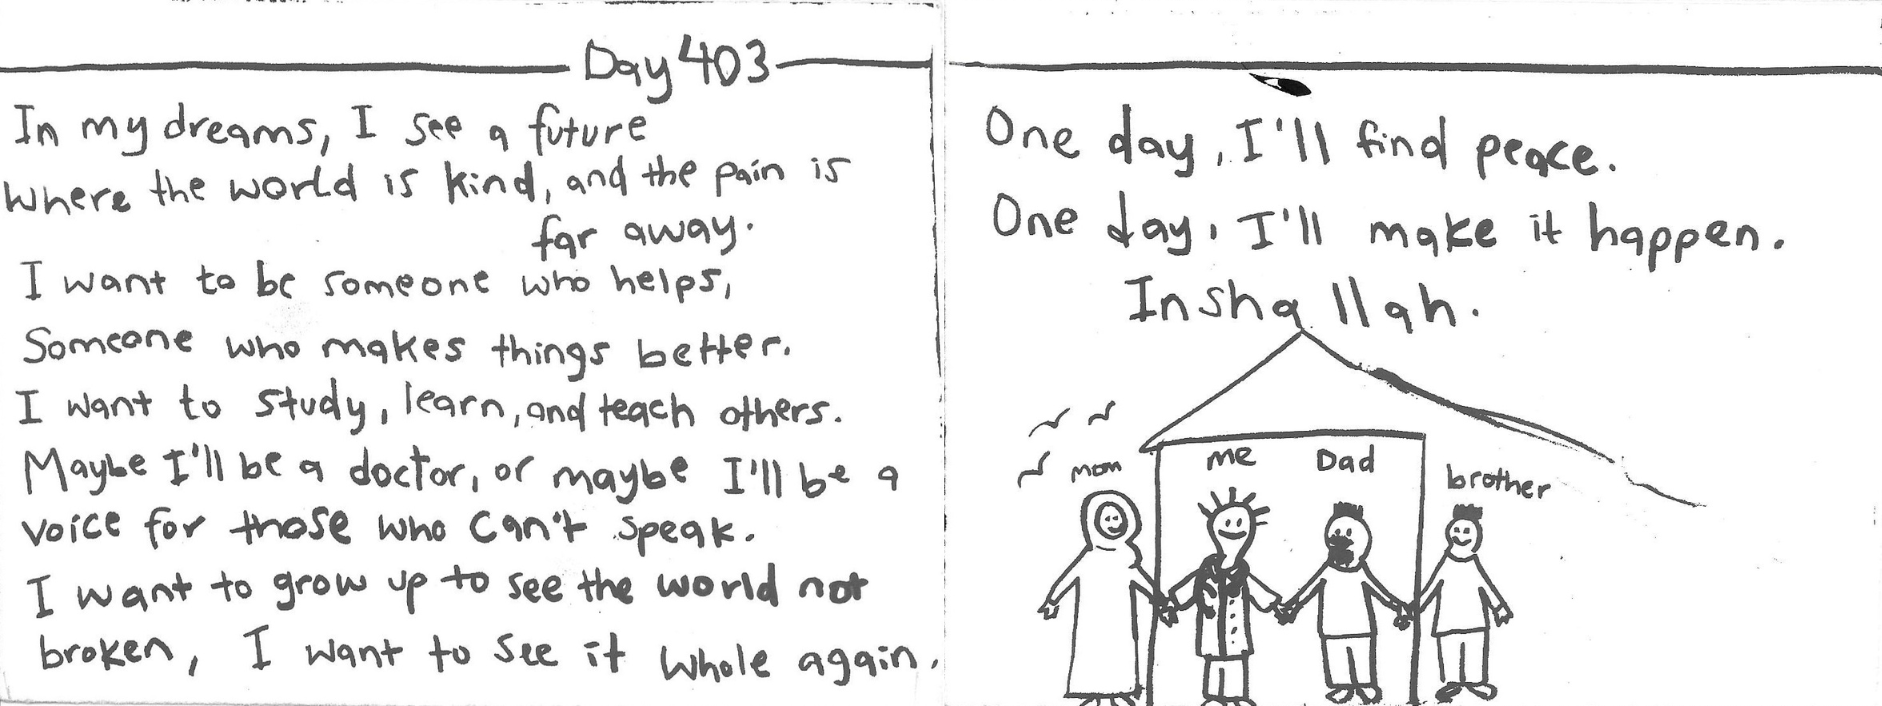 Day 403
In my dreams, I see a future
where the world is kind, and the pain is
far away.
I want to be someone who helps,
Someone who makes things better.
I want to study, learn, and teach others.
Maybe I'll be a doctor, or maybe I'll be a
voice for those who can't speak.
I want to grow up to see the world not
broken, I want to see it whole again.
One day, I'll find peace.
One day, I'll make it happen.
Inshallah.
mom
me
Dad
brother